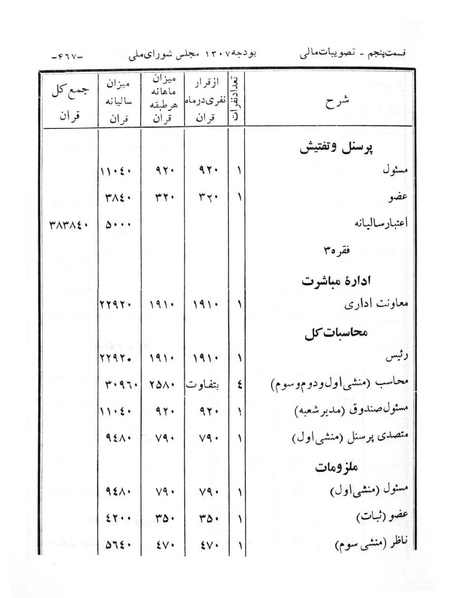 قسمت پنجم - تصویبات مالی بودجه ۱۳۰۷ مجلس شورای ملی -۴۶۷-
شرح تعداد نفرات از قرار نفری در ماه قران میزان ماهانه هر طبقه قران میزان سالیانه قران جمع کل قران
پرسنل و تفتیش
مسئول ۱ ۹۲۰ ۹۲۰ ۱۱۰٤۰
عضو ۱ ۳۲۰ ۳۲۰ ۳۸٤۰
اعتبار سالیانه ۵۰۰۰ ۳۸۳۸٤۰
فقره ۳
ادارهٔ مباشرت
معاونت اداری ۱ ۱۹۱۰ ۱۹۱۰ ۲۲۹۲۰
محاسبات کل
رئیس ۱ ۱۹۱۰ ۱۹۱۰ ۲۲۹۲۰
محاسب (منشی اول و دوم و سوم) ٤ بتفاوت ۲۵۸۰ ۳۰۹٦۰
مسئول صندوق (مدیر شعبه) ۱ ۹۲۰ ۹۲۰ ۱۱۰٤۰
متصدی پرسنل (منشی اول) ۱ ۷۹۰ ۷۹۰ ۹٤۸۰
ملزومات
مسئول (منشی اول) ۱ ۷۹۰ ۷۹۰ ۹٤۸۰
عضو (ثبات) ۱ ۳۵۰ ۳۵۰ ٤۲۰۰
ناظر (منشی سوم) ۱ ٤۷۰ ٤۷۰ ۵٦٤۰